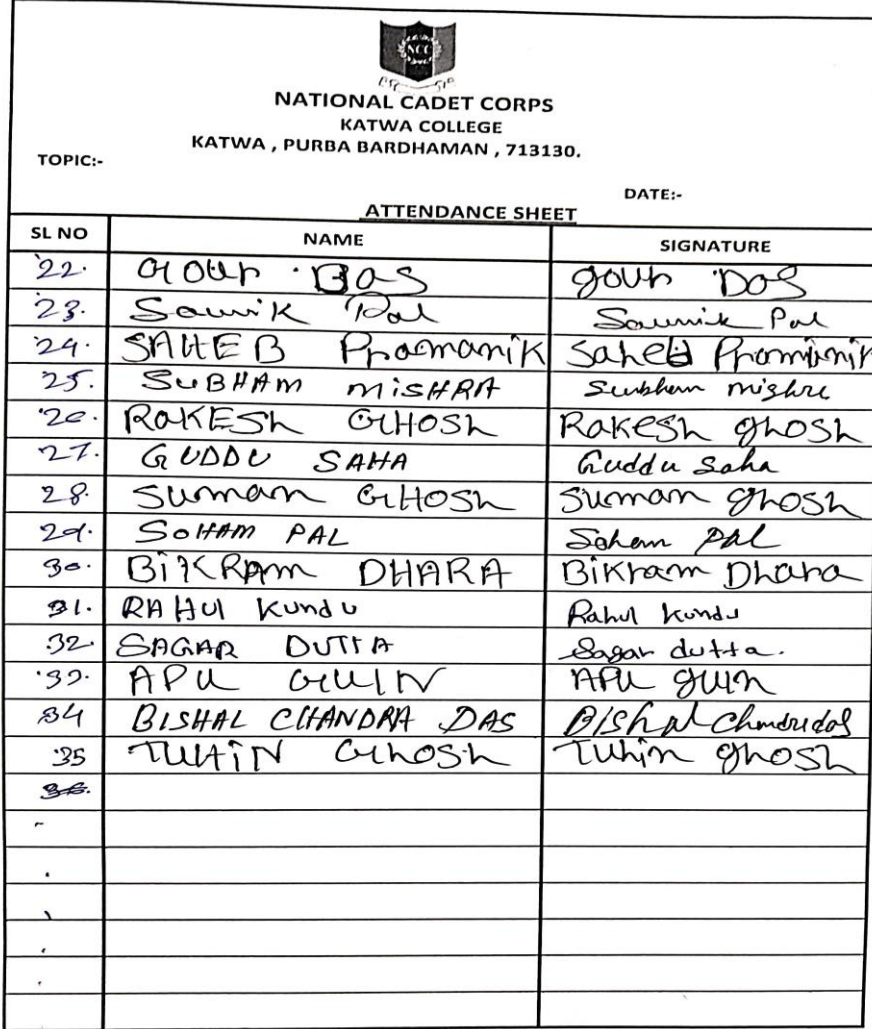 NCC
NATIONAL CADET CORPS
KATWA COLLEGE
KATWA , PURBA BARDHAMAN , 713130.
TOPIC:-
DATE:-
ATTENDANCE SHEET
SL NO NAME SIGNATURE
22. Gour Das gour Das
23. Souvik Pal Souvik Pal
24. SAHEB Pramanik Saheb Pramanik
25. SUBHAM MISHRA Subham mishra
26. RAKESh GHOSh RAKESh ghosh
27. GUDDU SAHA Guddu Saha
28. Suman GHOSh Suman ghosh
29. SOHAM PAL Soham Pal
30. BiKRAm DHARA Bikram Dhara
31. RAHUl Kundu Rahul Kundu
32. SAGAR DUTTA Sagar dutta.
33. APU GUIN APU guin
34 BISHAL CHANDRA DAS Bishal Chandra das
35 TUHiN GhOSh Tuhin ghosh
36.